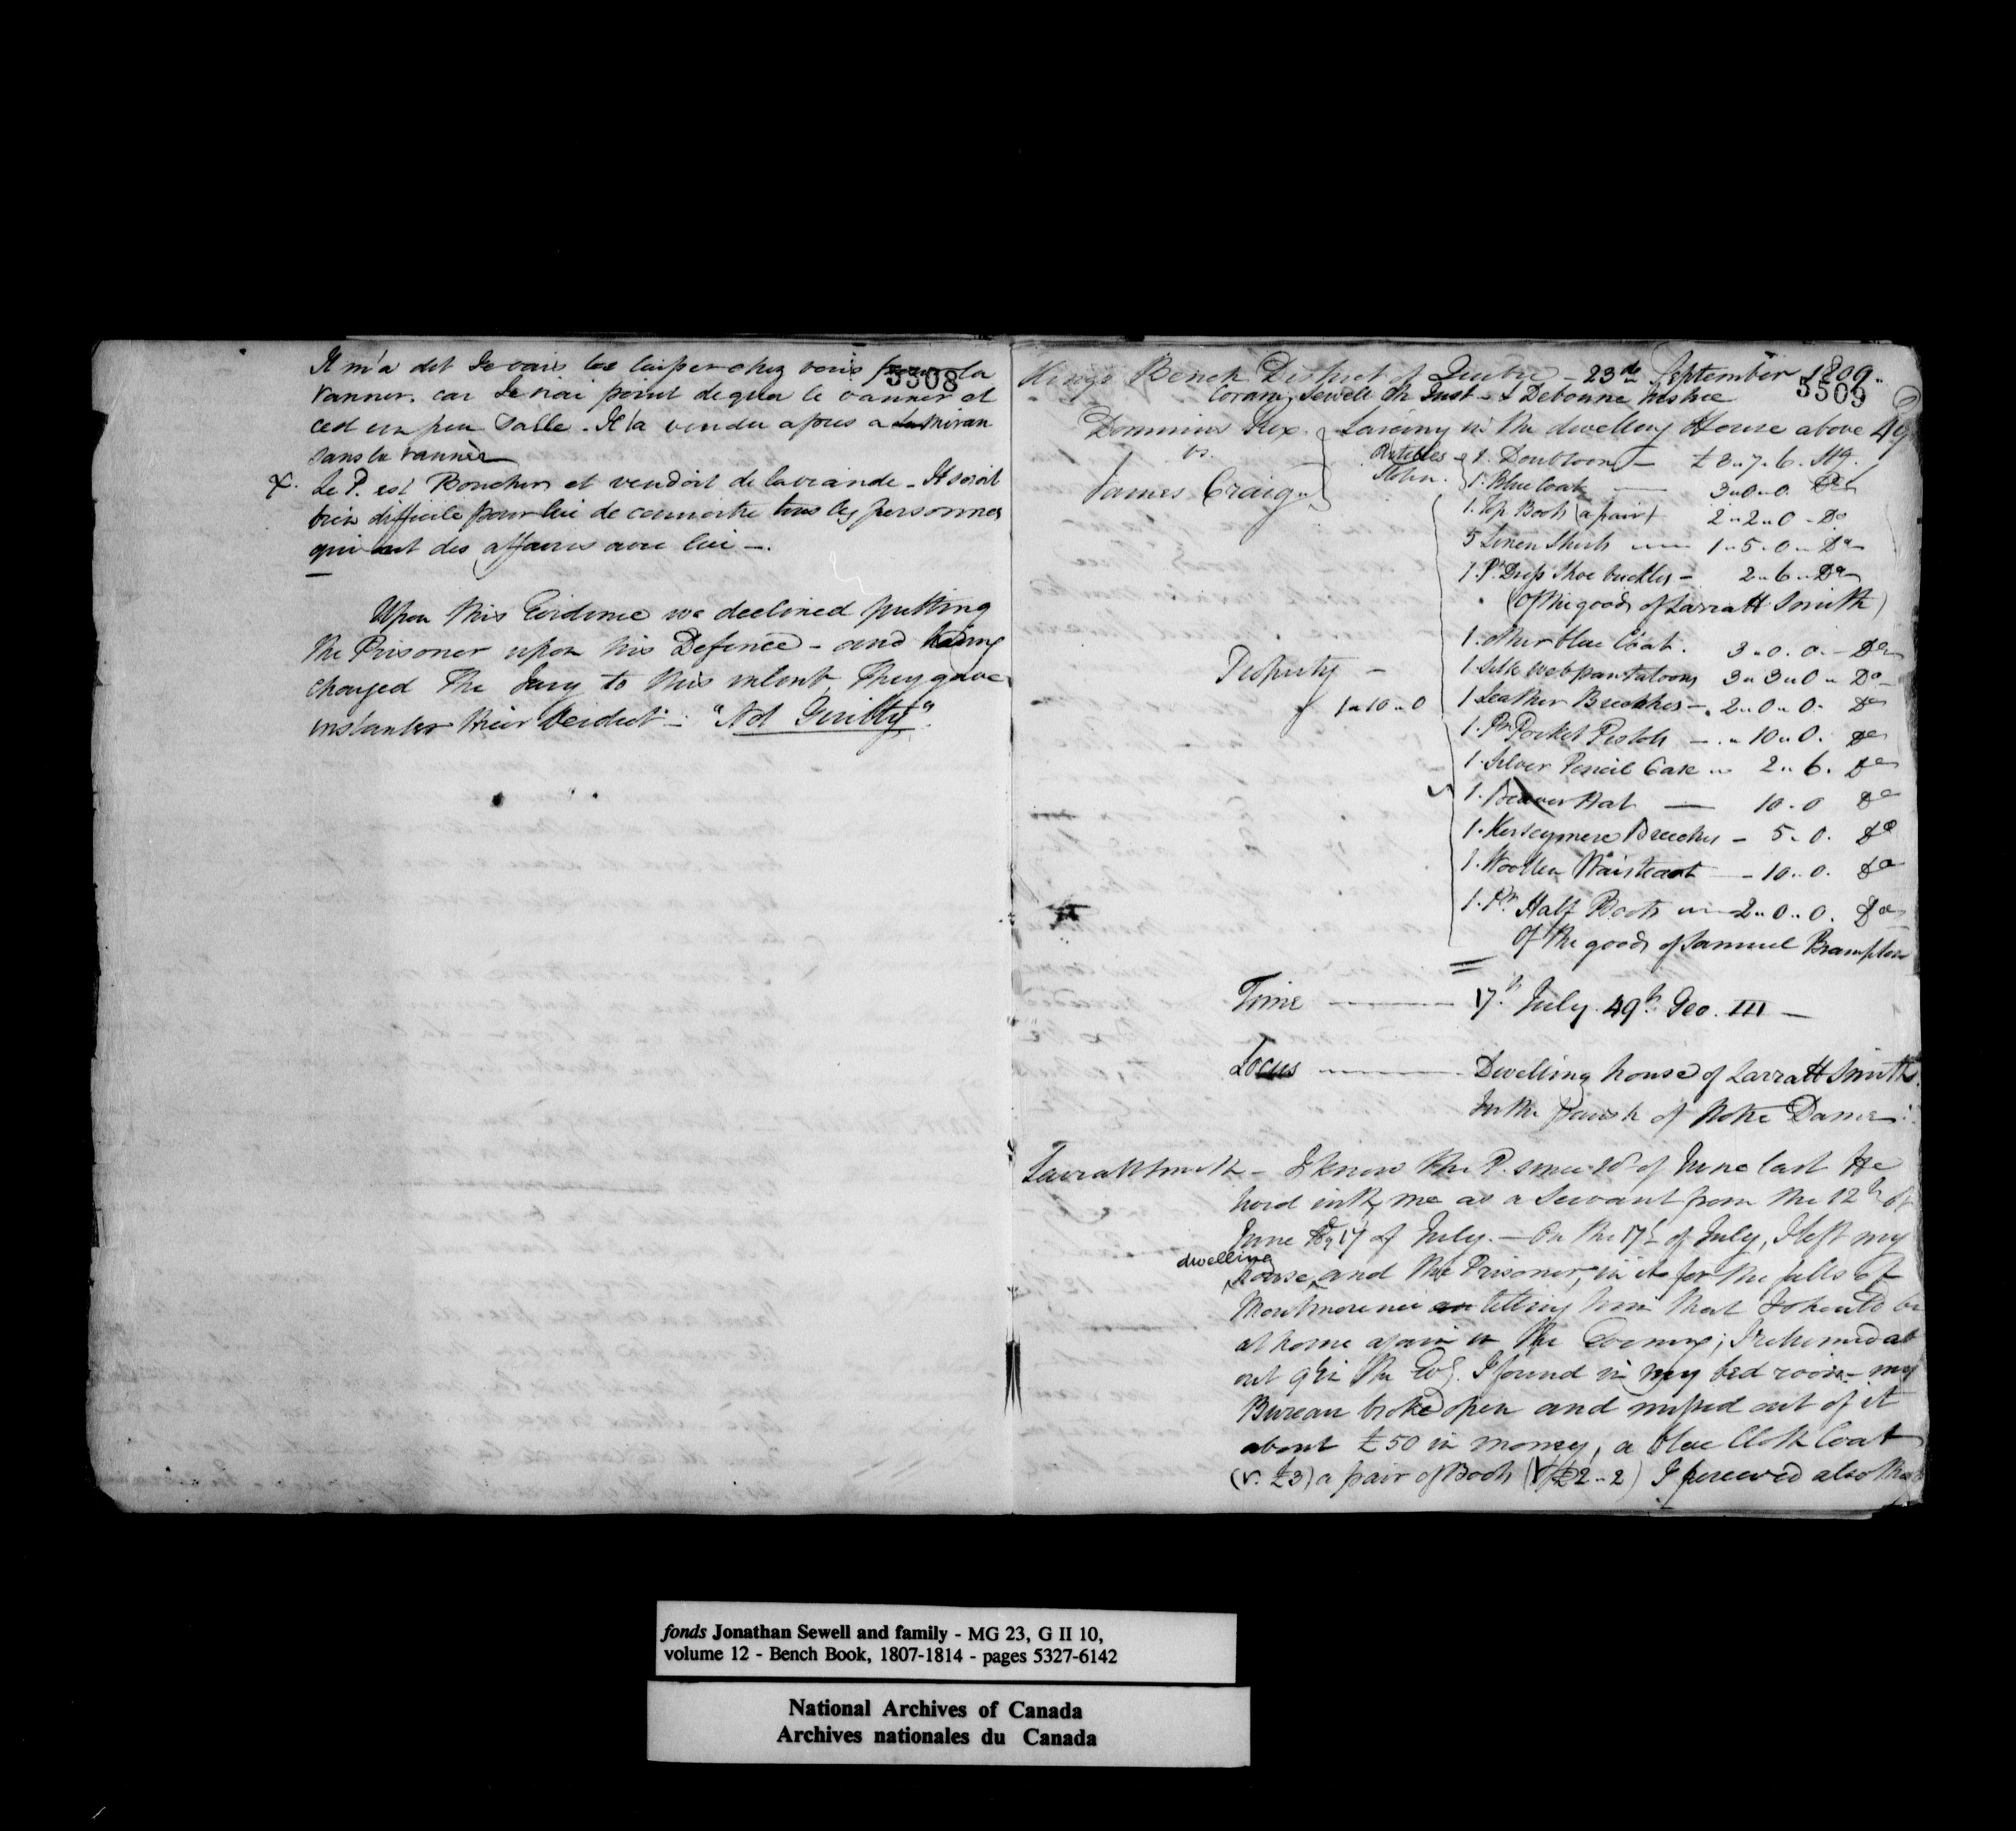 5508
Il m'a dit Je vais les laisser chez vous pour la
vanner. car Je n'ai point de quoi le vanner et
c'est un peu Salle. Il l'a vendu apres a
sans la vanner
X. Le P. est Boucher et vendoit de la viande - Il seroit
bien difficile pour lui de connoitre tous les personnes
qui ont des affaires avec lui -.
Upon this Evidence we declined putting
the Prisoner upon his Defence - and having
charged the Jury to this intent, They gave
instanter their Verdict - "Not Guilty"
Kings Bench District of Quebec - 23d September 1809.
5509
Coram, Sewell Ch Just - & Debonne Justice
Dominus Rex. Larceny in the dwelling House above 40
vs.
James Craig
Articles Stolen.
1. Doubloon - £ 3.. 7. 6. Stg.
1. Blue Coat — 3..0..0. Do
1. Top Boots (a pair) 2..2..0 - Do
5 Linen Shirts — 1..5..0.. Do
1. Pr Shoe buckles - 2..6.. Do
(Of the goods of Larratt Smith)
1. other blue Coat. 3..0..0. - Do
Property -
1 Silk web pantaloons 3..3..0.. Do
1..10..0
1 Leather Breeches -. 2..0..0. Do
1. Pr Pocket Pistols — 10..0. Do
1. Silver Pencil Case .. 2..6. Do
1. Beaver Hat — 10.0 Do
1. Kerseymere Breeches - 5..0. Do
1. Woollen Waistcoat - 10..0. Do
1. Pr. Half Boots — 2..0..0. Do
Of the goods of Samuel Brampton
Time — 17th July. 49th Geo. III —
Locus — Dwelling house of Larratt Smith.
In the Parish of Notre Dame.
Larratt Smith - I know the P. since 2d of June last He
lived with me as a Servant from the 12th of
June to 17 of July. — On the 17th of July, I left my
dwelling
house and the Prisoner, in it for the falls of
Montmorenci telling him that I should be
at home again in the Evening; I returned ab
out 9 in the Evg. I found in my bed room - my
Bureau broke open and missed out of it
about £50 in money, a blue Cloth Coat
(v. £3) a pair of Boots (v. £2..2) I perceived also
fonds Jonathan Sewell and family - MG 23, G II 10,
volume 12 - Bench Book, 1807-1814 - pages 5327-6142
National Archives of Canada
Archives nationales du Canada